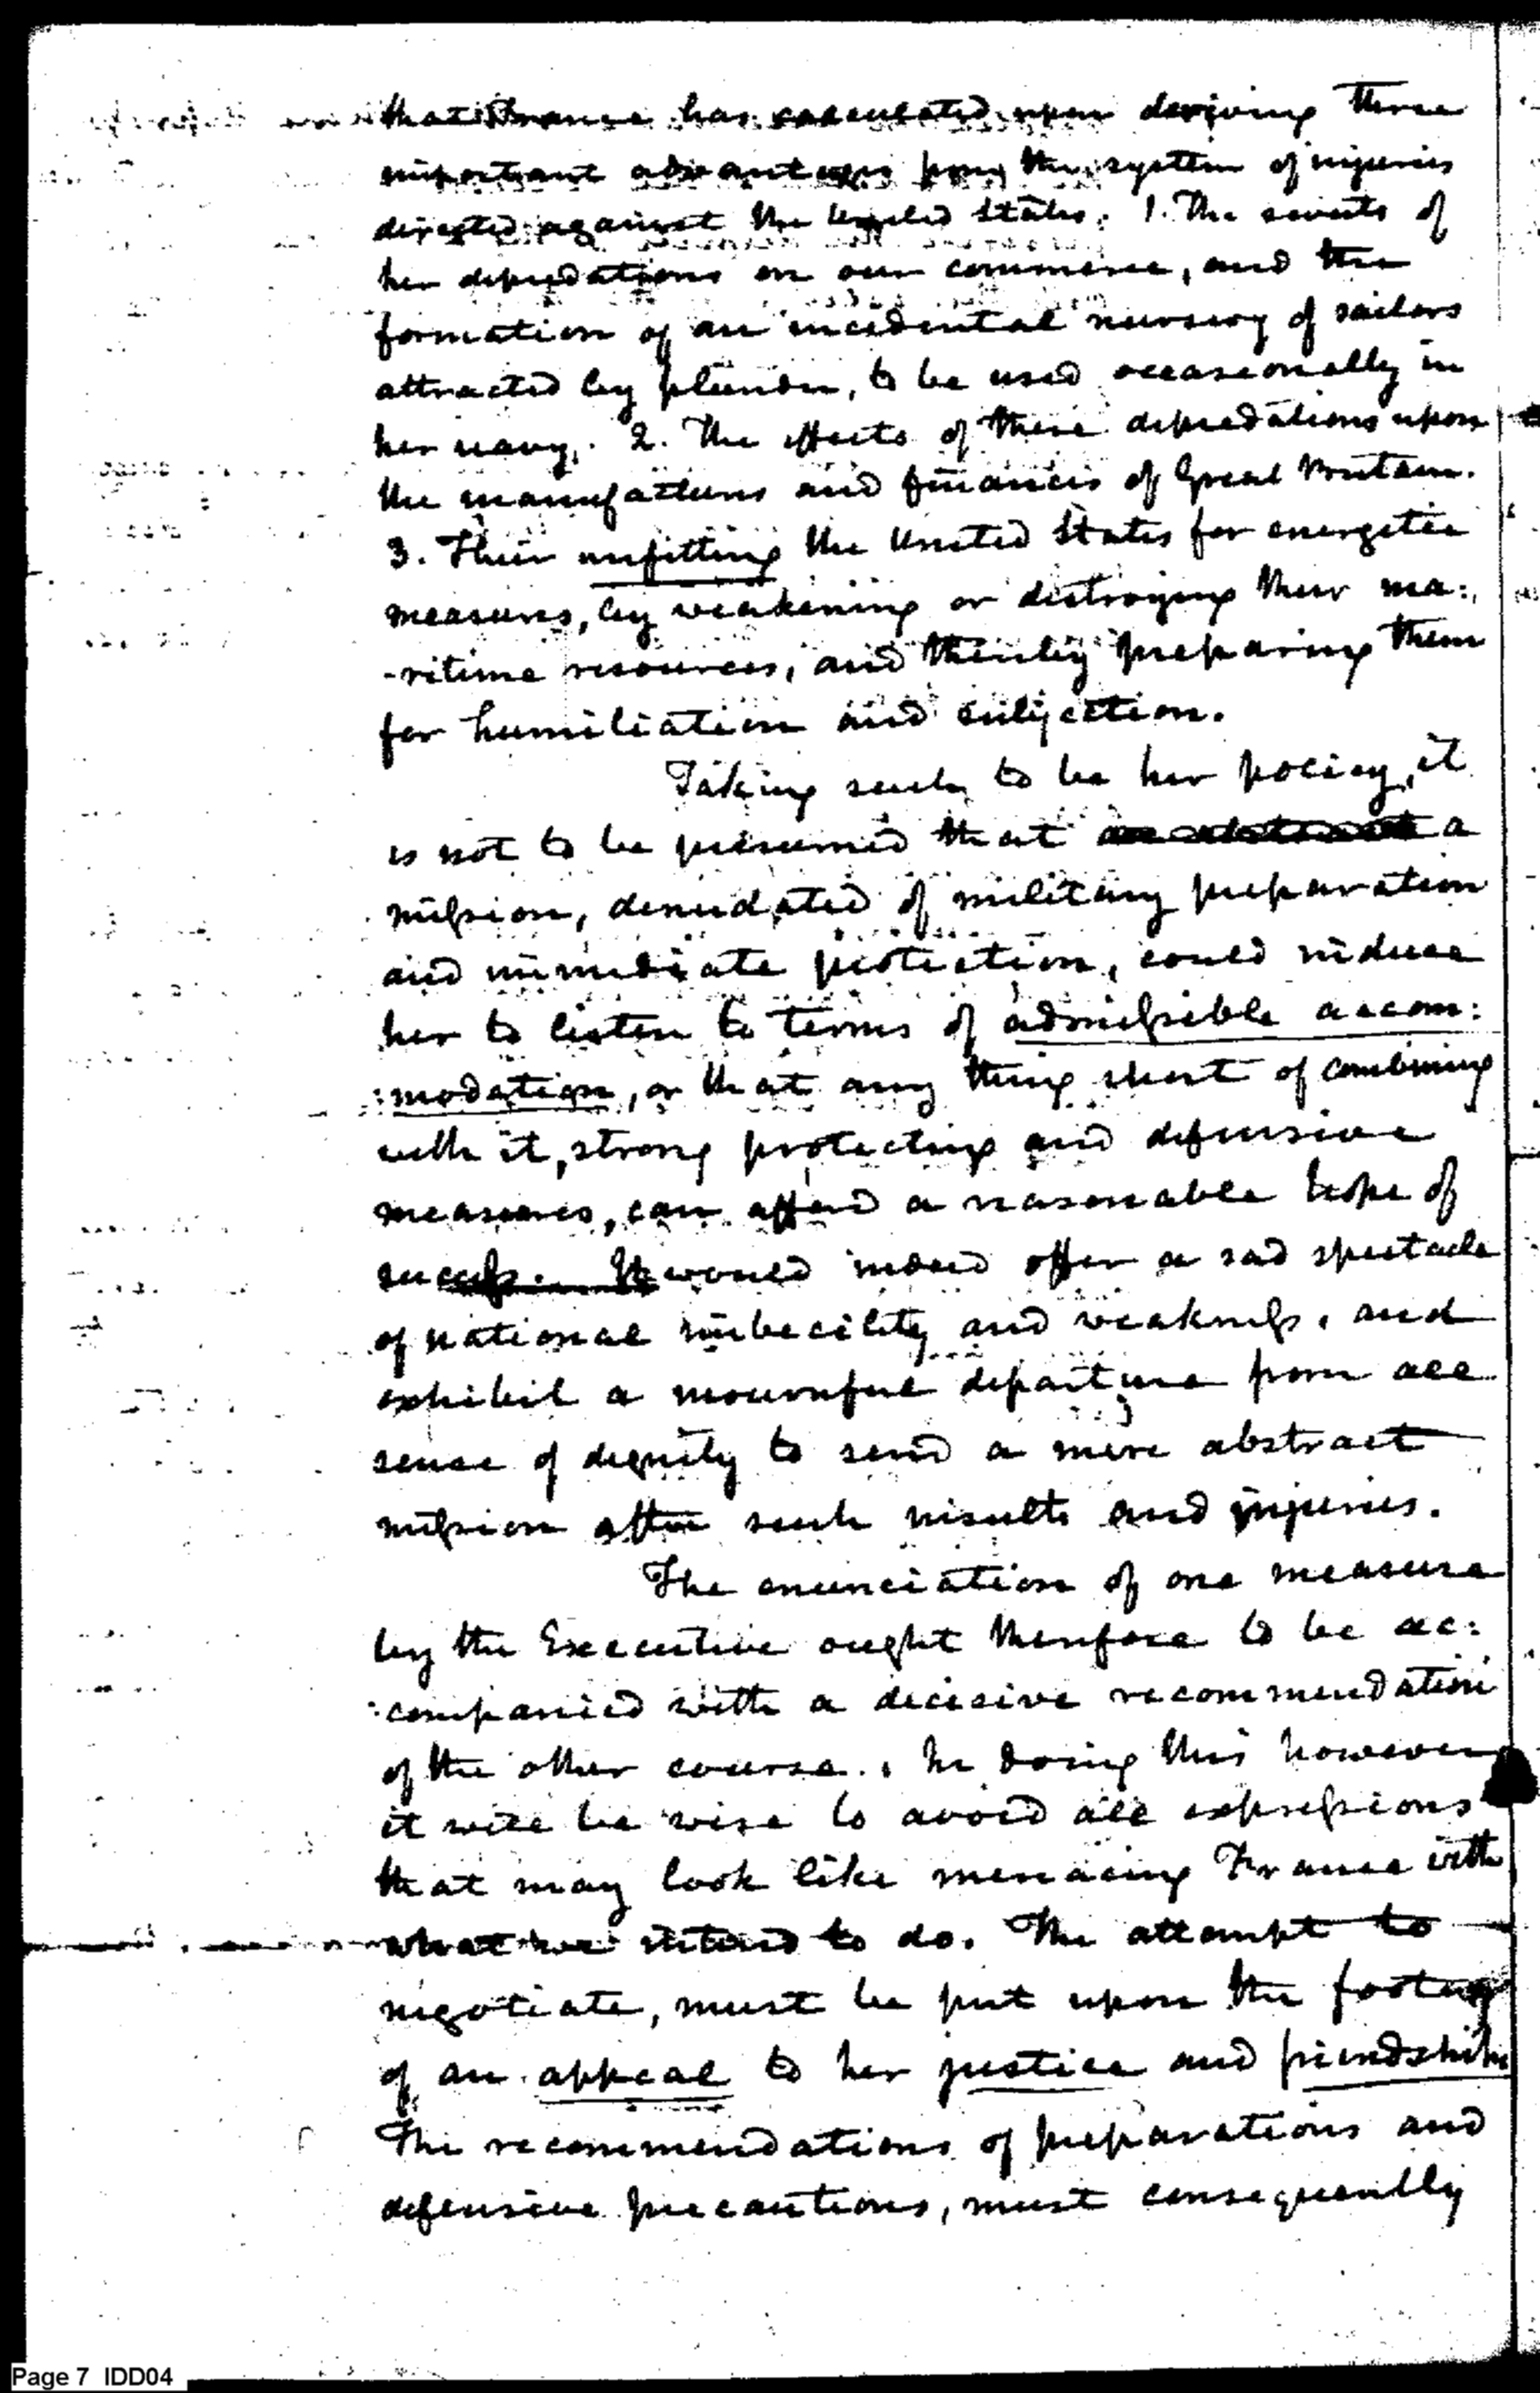 that France has calculated upon deriving three
important advantages from the system of injuries
directed against the United States. 1. The events of
her depredations on our commerce, and the
formation of an incidental nursery of sailors
attracted by plunder, to be used occasionally in
her navy. 2. The effects of these depredations upon
the manufactures and finances of Great Britain.
3. Their unfitting the United States for energetic
measures, by weakening or destroying their ma:
-ritime resources, and thereby preparing them
for humiliation and subjection.
Taking such to be her policy, it
is not to be presumed that a
mission, denudated of military preparation
and immediate protection, could induce
her to listen to terms of admissible accom:
:modation, or that any thing short of combining
with it, strong protecting and defensive
measures, can afford a reasonable hope of
success. It would indeed offer a sad spectacle
of national imbecility and weakness, and
exhibit a mournful departure from all
sense of dignity to send a mere abstract
mission after such insults and injuries.
The enunciation of one measure
by the Executive ought therefore to be ac:
:companied with a decisive recommendation
of the other course. In doing this however
it will be wise to avoid all expressions
that may look like menacing France with
what we intend to do. The attempt to
negotiate, must be put upon the footing
of an appeal to her justice and friendship
The recommendations of preparations and
defensive precautions, must consequently
Page 7 IDD04